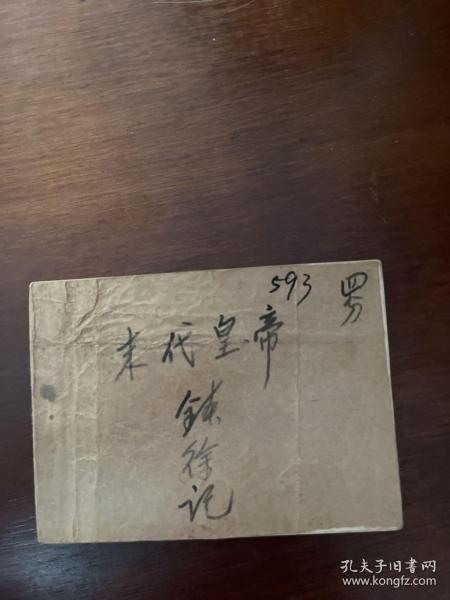 593
四分
末代皇帝
徐记
孔夫子旧书网
www.kongfz.com